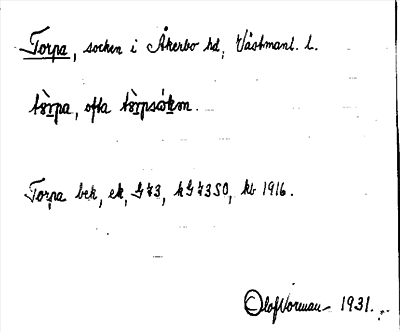 Torpa, socken i Åkerbo hd, Västmanl. l.
tòrpa, ofta tòrpsókəm.
Torpa bek, ek, G43, kG43SO, kb 1916.
Olof Norman 1931.